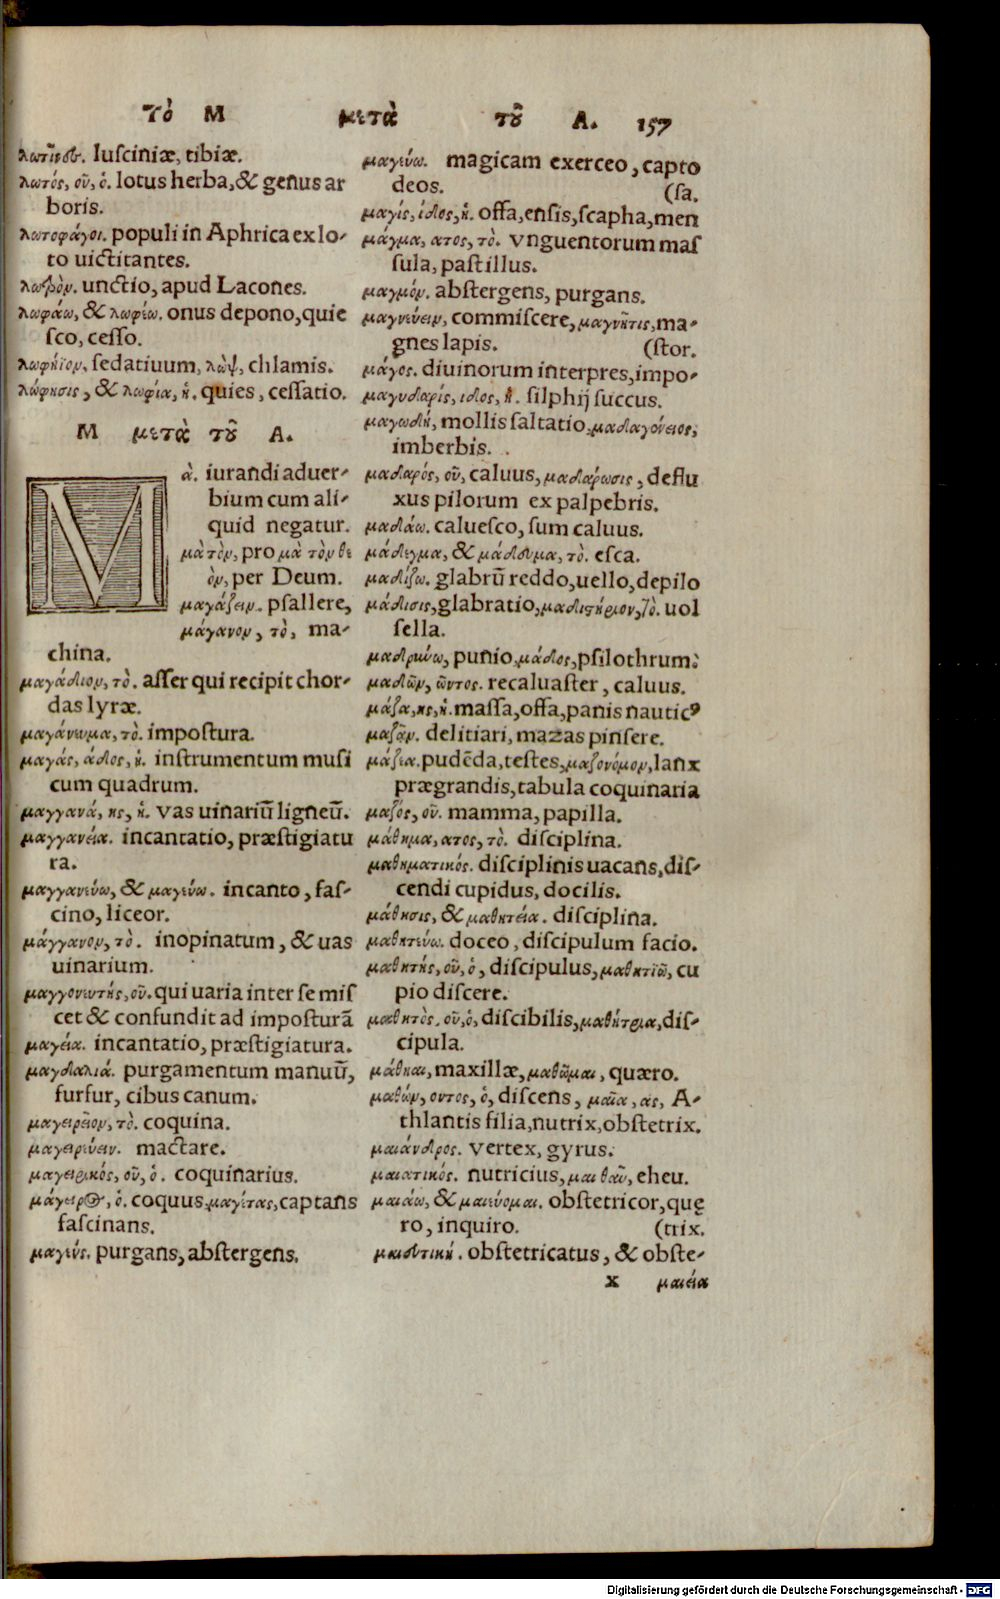 Τὸ M μετὰ τοῦ A. 157
λωτῖναι. lusciniæ, tibiæ.
λωτός, οῦ, ὁ. lotus herba, & genus ar
boris.
λωτοφάγοι. populi in Aphrica ex lo-
to uictitantes.
unctio, apud Lacones.
λωφάω, & λωφέω. onus depono, quie
sco, cesso.
λωφήϊον. sedatiuum, λὼψ, chlamis.
λώφησις, & λωφία, ἡ. quies, cessatio.
M μετὰ τοῦ A.
Μὰ. iurandi aduer-
bium cum ali-
quid negatur.
μὰ τὸν, pro μὰ τὸν θε
ὸν, per Deum.
μαγάζειν. psallere,
μάγανον, τὸ, ma-
china.
μαγάδιον, τὸ. asser qui recipit chor-
das lyræ.
μαγάνωμα, τὸ. impostura.
μαγάς, άδος, ἡ. instrumentum musi
cum quadrum.
μαγγανά, ης, ἡ. vas uinariū ligneū.
μαγγανέια. incantatio, præstigiatu
ra.
μαγγανεύω, & μαγεύω. incanto, fas-
cino, liceor.
μάγγανον, τὸ. inopinatum, & uas
uinarium.
μαγγονευτής, οῦ. qui uaria inter se mis
cet & confundit ad imposturā
μαγέια. incantatio, præstigiatura.
μαγδαλιά. purgamentum manuū,
furfur, cibus canum.
μαγειρεῖον, τὸ. coquina.
μαγειρεύειν. mactare.
μαγειρικός, οῦ, ὁ. coquinarius.
μάγειρος, ὁ. coquus, μαγέτας, captans
fascinans.
μαγεύς. purgans, abstergens.
μαγεύω. magicam exerceo, capto
deos. (sa.
μαγίς, ίδος, ἡ. offa, ensis, scapha, men
μάγμα, ατος, τὸ. vnguentorum mas
sula, pastillus.
μαγμόν. abstergens, purgans.
μαγνεύειν, commiscere, μαγνῆτις, ma-
gnes lapis. (stor.
μάγος. diuinorum interpres, impo-
μαγυδαρίς, ιδος, ἡ. silphij succus.
μαγωδή, mollis saltatio, μαδαγόνειος,
imberbis.
μαδαρός, οῦ, caluus, μαδάρωσις, deflu
xus pilorum ex palpebris.
μαδάω. caluesco, sum caluus.
μάδεγμα, & μάδδυμα, τὸ. esca.
μαδίζω. glabrū reddo, uello, depilo
μάδισις, glabratio, μαδιστήριον, τὸ. uol
sella.
μαδρυνω, punio, μάδος, psilothrum.
μαδῶν, ῶντος. recaluaster, caluus.
μάζα, ης, ἡ. massa, offa, panis nauticꝰ
μαζᾶν. delitiari, mazas pinsere.
μάζια. pudēda, testes, μαζονόμον, lanx
prægrandis, tabula coquinaria
μαζός, οῦ. mamma, papilla.
μάθημα, ατος, τὸ. disciplina.
μαθηματικός. disciplinis uacans, dis-
cendi cupidus, docilis.
μάθησις, & μαθητέια. disciplina.
μαθητεύω. doceo, discipulum facio.
μαθητής, οῦ, ὁ, discipulus, μαθητιῶ, cu
pio discere.
μαθητὸς, οῦ, ὁ, discibilis, μαθήτρια, dis-
cipula.
μάθηαι, maxillæ, μαθῶμαι, quæro.
μαθών, οντος, ὁ, discens, μαῖα, ας, A-
thlantis filia, nutrix, obstetrix.
μαιάνδρος. vertex, gyrus.
μαιατικός. nutricius, μαι θαῦ, eheu.
μαιάω, & μαιεύομαι. obstetricor, quę
ro, inquiro. (trix.
μαιευτική. obstetricatus, & obste-
x μαιέια
Digitalisierung gefördert durch die Deutsche Forschungsgemeinschaft - DFG